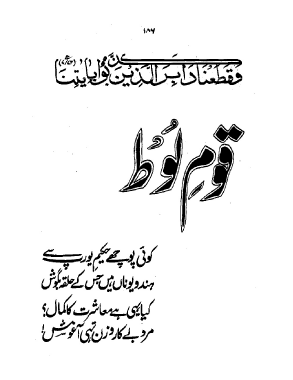 ۱۸۶
وقطعنا دابر الذين كذبوا بايتنا
قومِ لُوط
کوئی پوچھے حکیمِ یورپ سے
ہند و یوناں ہیں جس کے حلقہ بگوش
کیا یہی ہے معاشرت کا کمال؟
مرد بے کار و زن تہی آغوش!